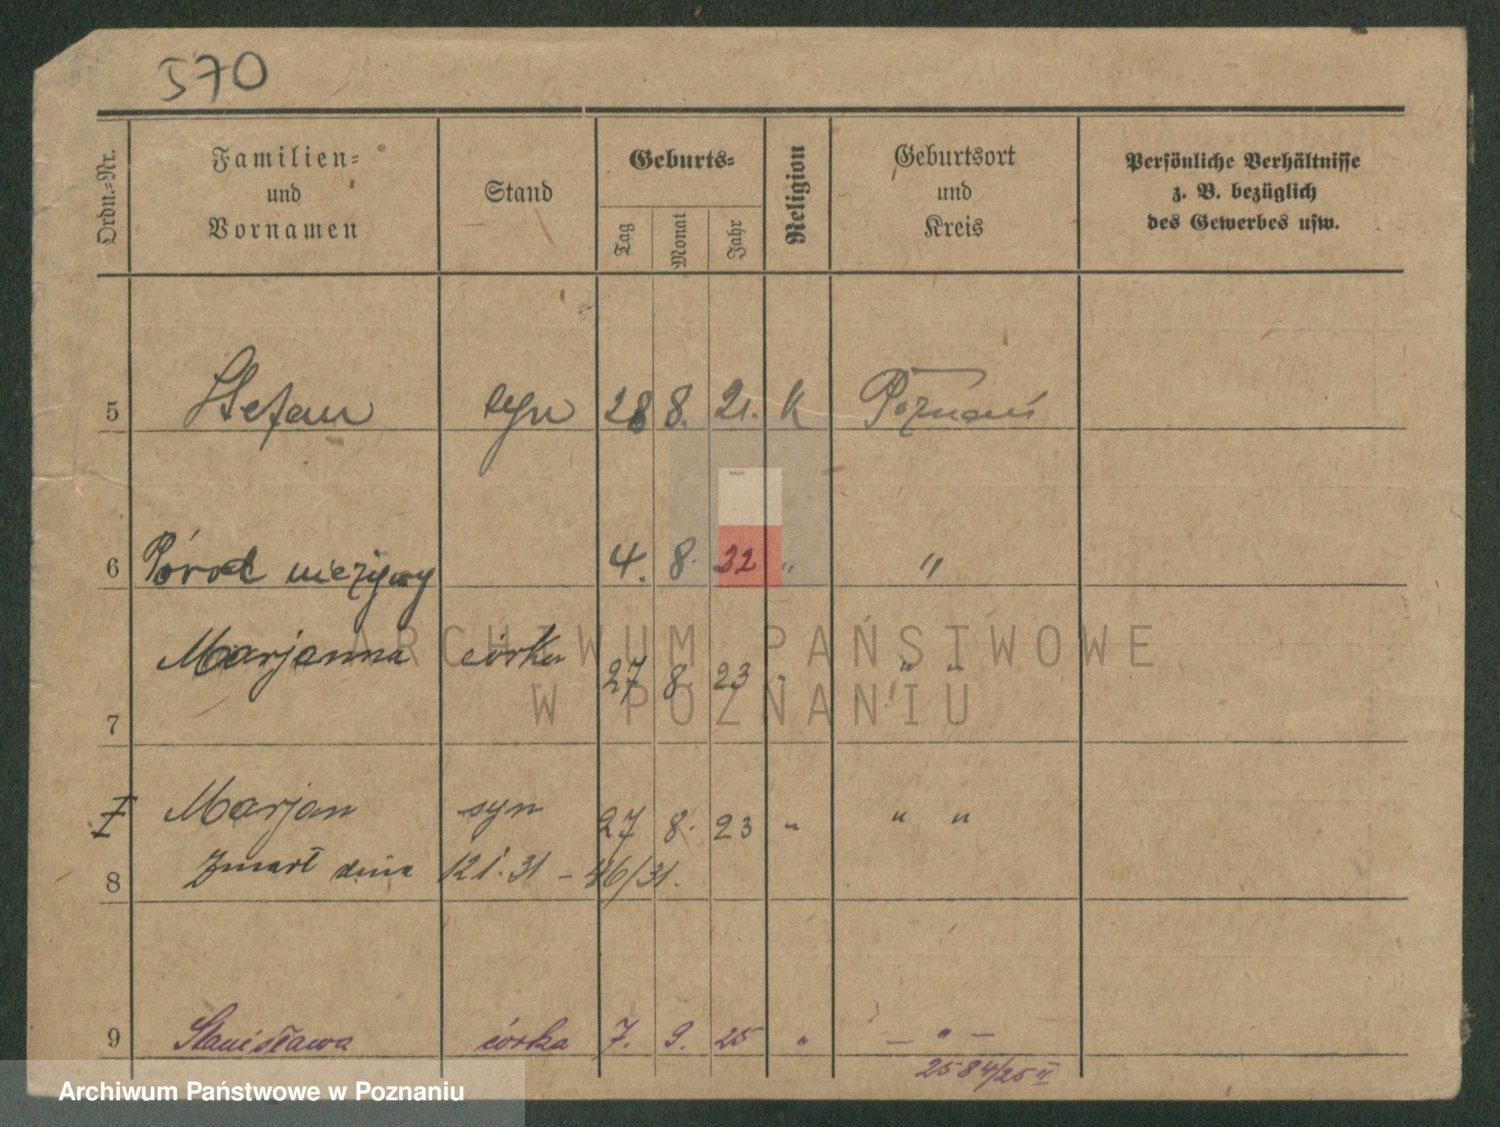 570
Ordn.-Nr.
Familien-
und
Vornamen
Stand
Geburts-
Tag
Monat
Jahr
Religion
Geburtsort
und
Kreis
Persönliche Verhältnisse
z. B. bezüglich
des Gewerbes usw.
5 Stefan syn 28 8. 21. K Poznań
6 Poród nieżywy 4. 8. 22 " "
Marjanna córka 27 8. 23 " " "
7
Marjan syn 27 8. 23 " " "
8 Zmarł dnia 12 1. 31 - 46/31.
9 Stanisława córka 7. 9. 25 " — " —
2584/25 II
ARCHIWUM PAŃSTWOWE
W POZNANIU
Archiwum Państwowe w Poznaniu